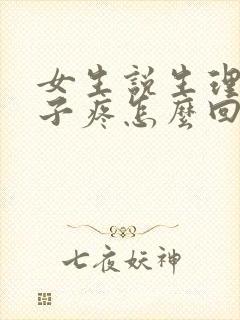 女生說生理
子疼怎麼回
七夜妖神